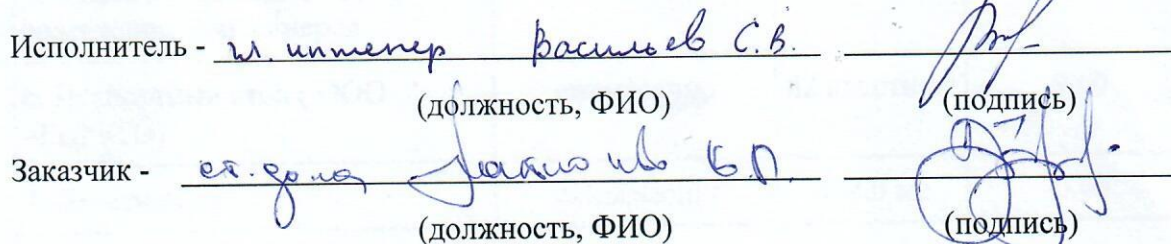 Исполнитель - гл. инженер Васильев С.В.
(должность, ФИО) (подпись)
Заказчик - ст. дома В.П.
(должность, ФИО) (подпись)